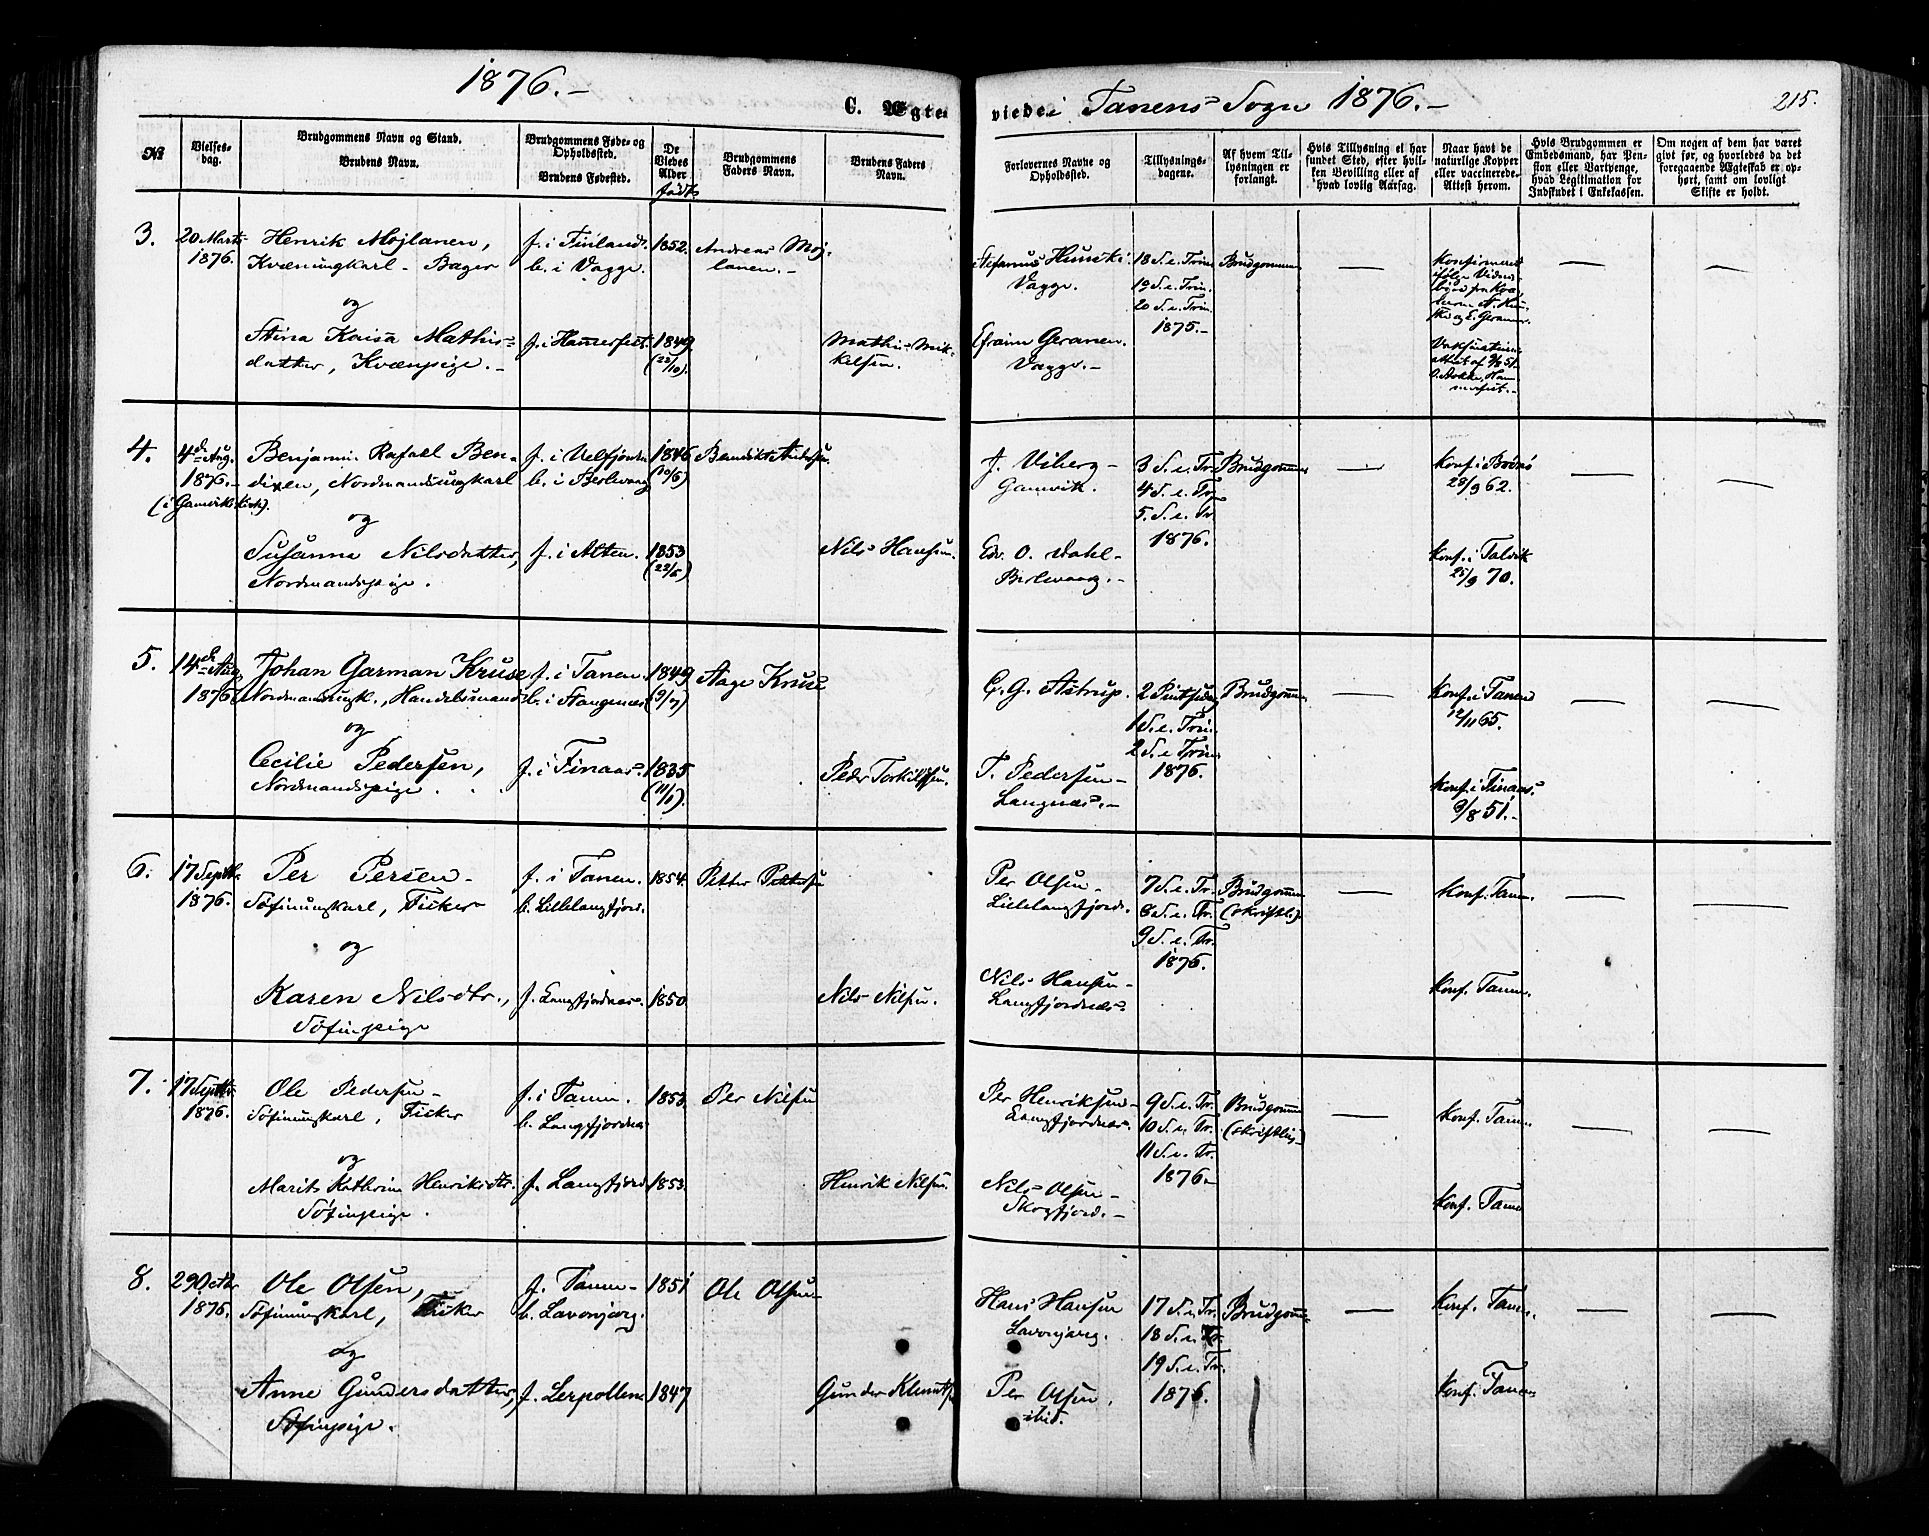 1876.-
C. Ægte-
viede i Tanens Sogn 1876.-
215.
№
Vielses-
dag.
Brudgommens Navn og Stand.
Brudens Navn.
Brudgommens Føde- og
Opholdssted.
Brudens Fødested.
De
Viedes
Alder
født
Brudgommens
Faders Navn.
Brudens Faders
Navn.
Forlovernes Navne og
Opholdssted.
Tillysnings-
dagene.
Af hvem Til-
lysningen er
forlangt.
Hvis Tillysning ei har
fundet Sted, efter hvil-
ken Bevilling eller af
hvad lovlig Aarsag.
Naar havt de
naturlige Kopper
eller vaccinerede.
Attest herom.
Hvis Brudgommen er
Embedsmand, har Pen-
sion eller Vartpenge,
hvad Legitimation for
Indskudet i Enkekassen.
Om nogen af dem har været
givt før, og hvorledes da det
foregaaende Ægteskab er op-
hørt, samt om lovligt
Skifte er holdt.
3.
20 Marts
1876.
Henrik Mojlanen,
Kvænungkarl - Bager
og
Stina Kaisa Mathis-
datter, Kvænpige.-
f. i Finland.
b. i Vagge.
f. i Hamerfest.
1852.
1849
(22/10).
Andreas Moj-
lanen.-
Mathis Mik-
kelsen.
Vagge.
Efraim Geranen.
Vagge.-
18 S. e. Trin
19 S. e. Trin.
20 S. e. Trin.
1875.-
Brudgommen
Konfirmeret
ifølge Vidnes-
4.
4de Aug.
1876.-
(i Gamviks Kirke).
Benjamin Rafael Ben-
dixen, Nordmandsungkarl
og
Susanna Nilsdatter,
Nordmandspige.
f. i Velfjorden
b. i Berlevaag
f. i Alten.
1846
(10/6)
1853
(22/5)
Bendikt Andersen.
Nils Hansen.
J. Viberg-
Gamvik.
Edv. O. Dahl-
Berlevaag.-
3 S. e. Tr.
4 S. e. Tr.
5. S. e. Tr
1876.
Brudgommen
Konf. i Brønø
28/9 62.
Konf. i Talvik
25/9 70.
5.
14de Aug
1876
Johan Garman Kruse
Nordmandsungk., Handelsmand
og
Cecilie Pedersen,
Nordmandspige.
f. i Tanen.
b. i Stangenæs
f. i Finaas.
1849
(9/7)
1835
(11/1).
Aage Kruse
Peder Torkildsen.
C. G. Astrup.
T. Pedersen-
Langnæs.-
2 Pintsedag
1 S. e. Trin.
2 S. e. Trin
1876.
Brudgommen
Konf. i Tanen
12/11 65.
Konf. i Finaas.
9/8 51.-
6.
17 Septbr.
1876.
Per Persen-
Søfinungkarl, Fisker
og
Karen Nilsdtr.,
Søfinpige
f. i Tanen.
b. Lillelangfjord.
f. Langfjordnæs.
1854.
1850
Petter Pettersen
Nils Nilsen.
Per Olsen-
Lillelangfjord.
Nils Hansen-
Langfjordnæs.
7 S. e. Tr.
8 S. e. Tr.
9 S. e. Tr.
1876.
Brudgommen
(skriftlig)
Konf. Tanen.
Konf. Tanen.
7.
17 Septbr.
1876.
Ole Pedersen-
Søfinungkarl, Fisker
og
Marit Kathrine Henriksdtr.
Søfinpige.
f. i Tanen.
b. Langfjordnæs
f. Langfjord
1853.
1853.
Per Nilsen
Henrik Nilsen.
Per Henriksen-
Langfjordnæs.
Nils Olsen-
Skogfjord.-
9 S. e. Tr.
10 S. e. Tr.
11 S. e. Tr.
1876.-
Brudgommen
(skriftlig)
Konf. Tanen.
Konf. Tanen
8.
29 Octbr.
1876.
Ole Olsen,
Søfinungkarl, Fisker
og
Anne Gundersdatter,
Søfinpige.
f. Tanen-
b. Lavonjarg.
f. Lerpollen
1851
1847
Ole Olsen
Gunder Klemetsen
Hans Hansen
Lavonjarg.
Per Olsen,
ibid.
17 S. e. Tr.
18 S. e. Tr.
19 S. e. Tr.
1876.
Brudgommen
Konf. Tanen.
Konf. Tanen